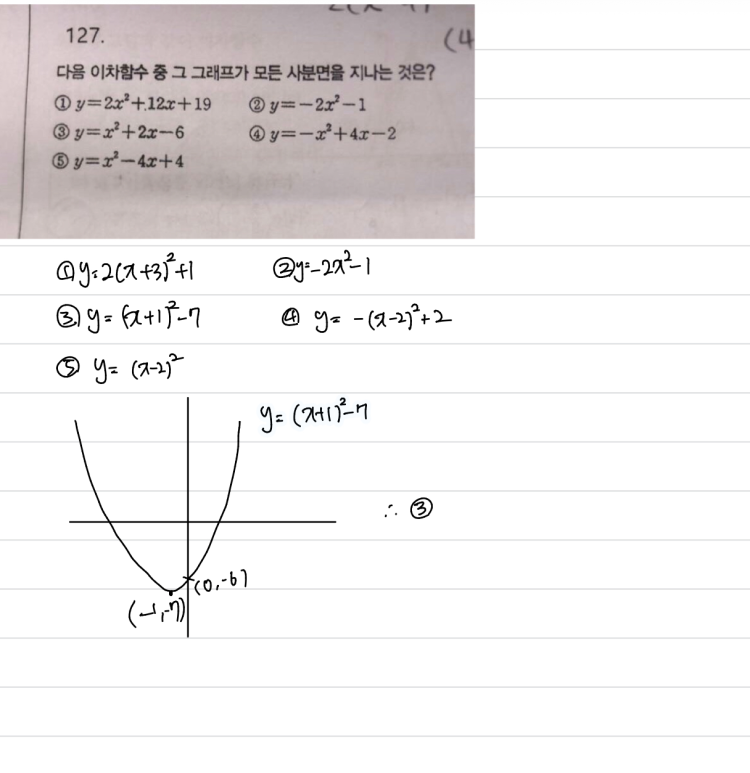 127.
(4
다음 이차함수 중 그 그래프가 모든 사분면을 지나는 것은?
① y=2x²+12x+19 ② y=-2x²-1
③ y=x²+2x-6 ④ y=-x²+4x-2
⑤ y=x²-4x+4
① y=2(x+3)²+1 ② y=-2x²-1
③ y=(x+1)²-7 ④ y=-(x-2)²+2
⑤ y=(x-2)²
y=(x+1)²-7
∴ ③
(0,-6)
(-1,-7)